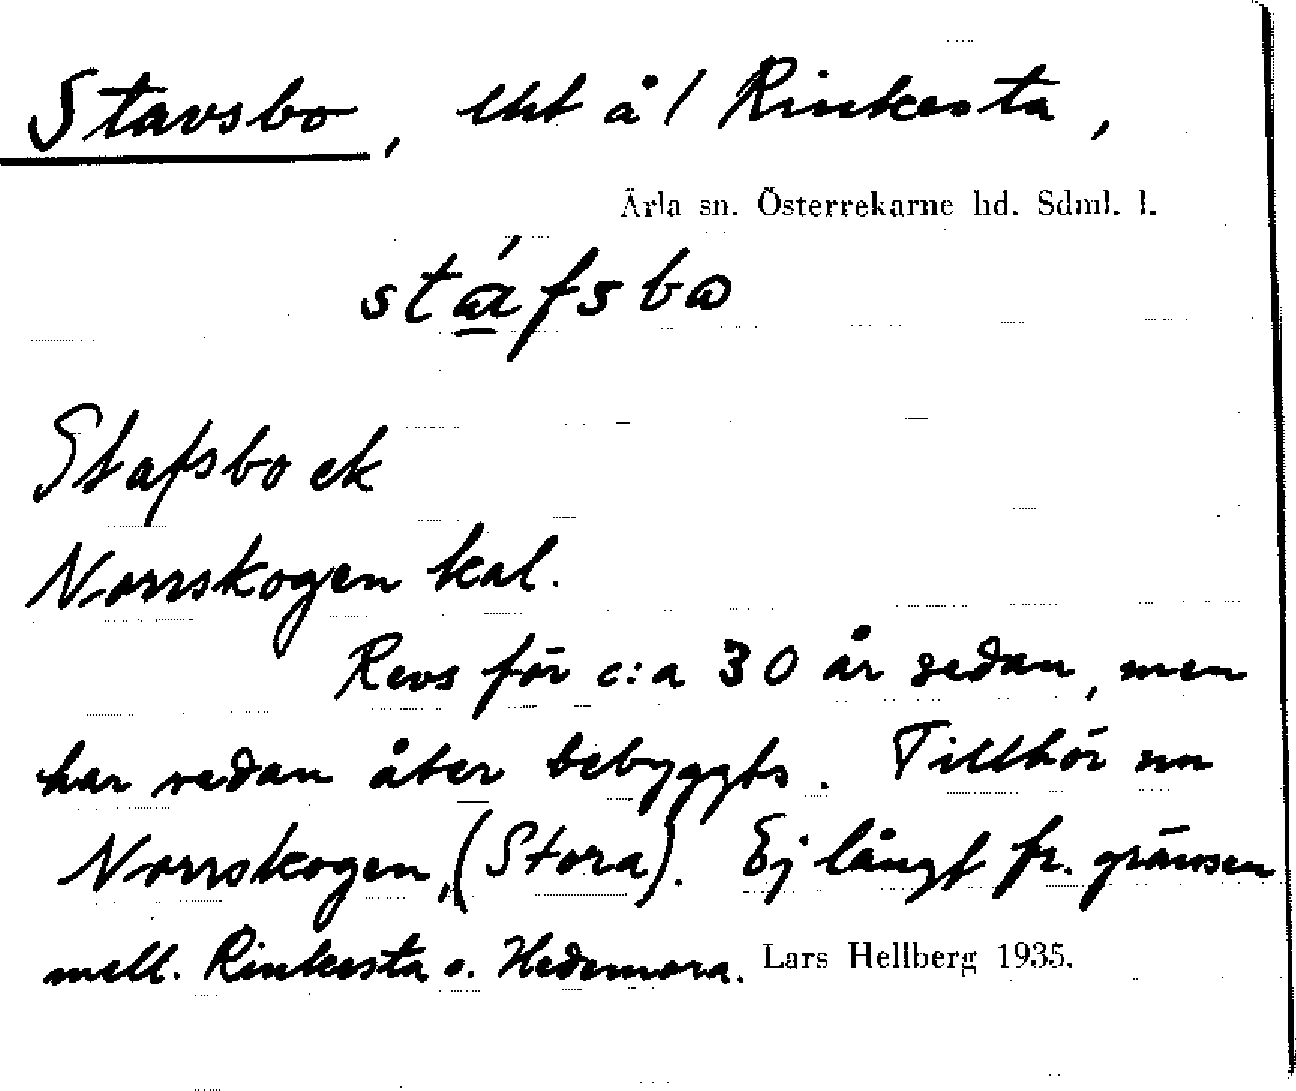 Stavsbo, lht å/ Rinkesta,
Ärla sn. Österrekarne hd. Sdml. l.
stáfsbɷ
Stafsbo ek
Norrskogen kal.
Revs för c:a 30 år sedan, men
har sedan åter bebyggts. Tillhör nu
Norrskogen, (Stora). Ej långt fr. gränsen
mell. Rinkesta o. Hedemora. Lars Hellberg 1935.